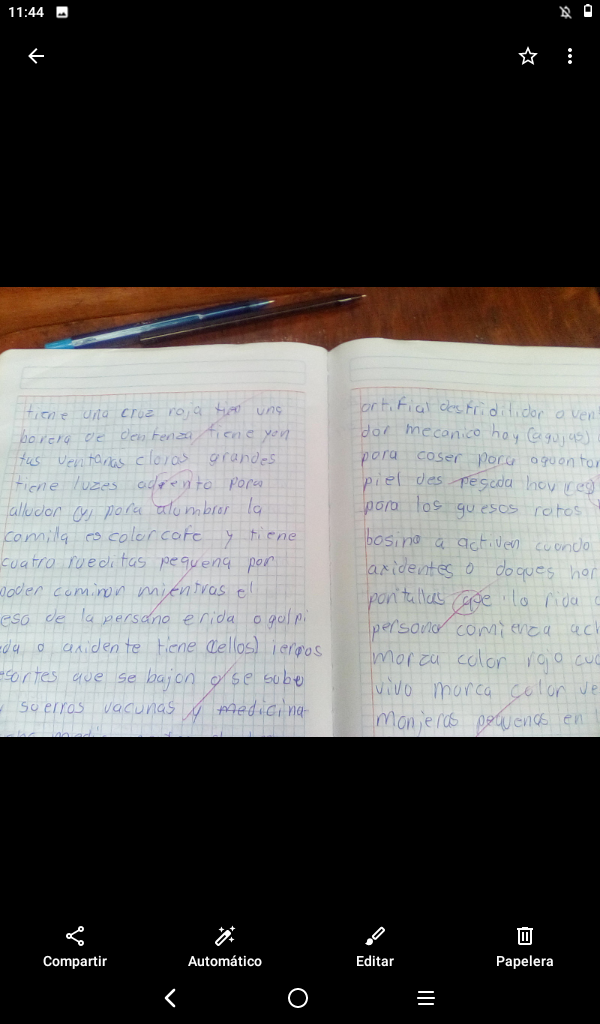 11:44
tiene una cruz roja tien una
borera de dentenza tiene yen
tus ventanas claros grandes
tiene luzes adrento para
alludor (y) para alumbrar la
comilla es color cafe y tiene
cuatro rueditas pequena por
poder caminar mientras el
eso de la persano erida o golpi
da o axidente tiene (cellos) ierros
esortes que se bajan o se sube
y suerros vacunas y medicina
artifial desfridilidor o ven
dor mecanico hay (agujas)
para coser para aguantar
piel des pegada hay (es)
para los guesos rotos
bosina a activen cuando
axidentes o doques har
pantallas que lo rida
persona comienza ach
marza color rojo cua
vivo marca color ve
manjeras pequenas en
Compartir
Automático
Editar
Papelera